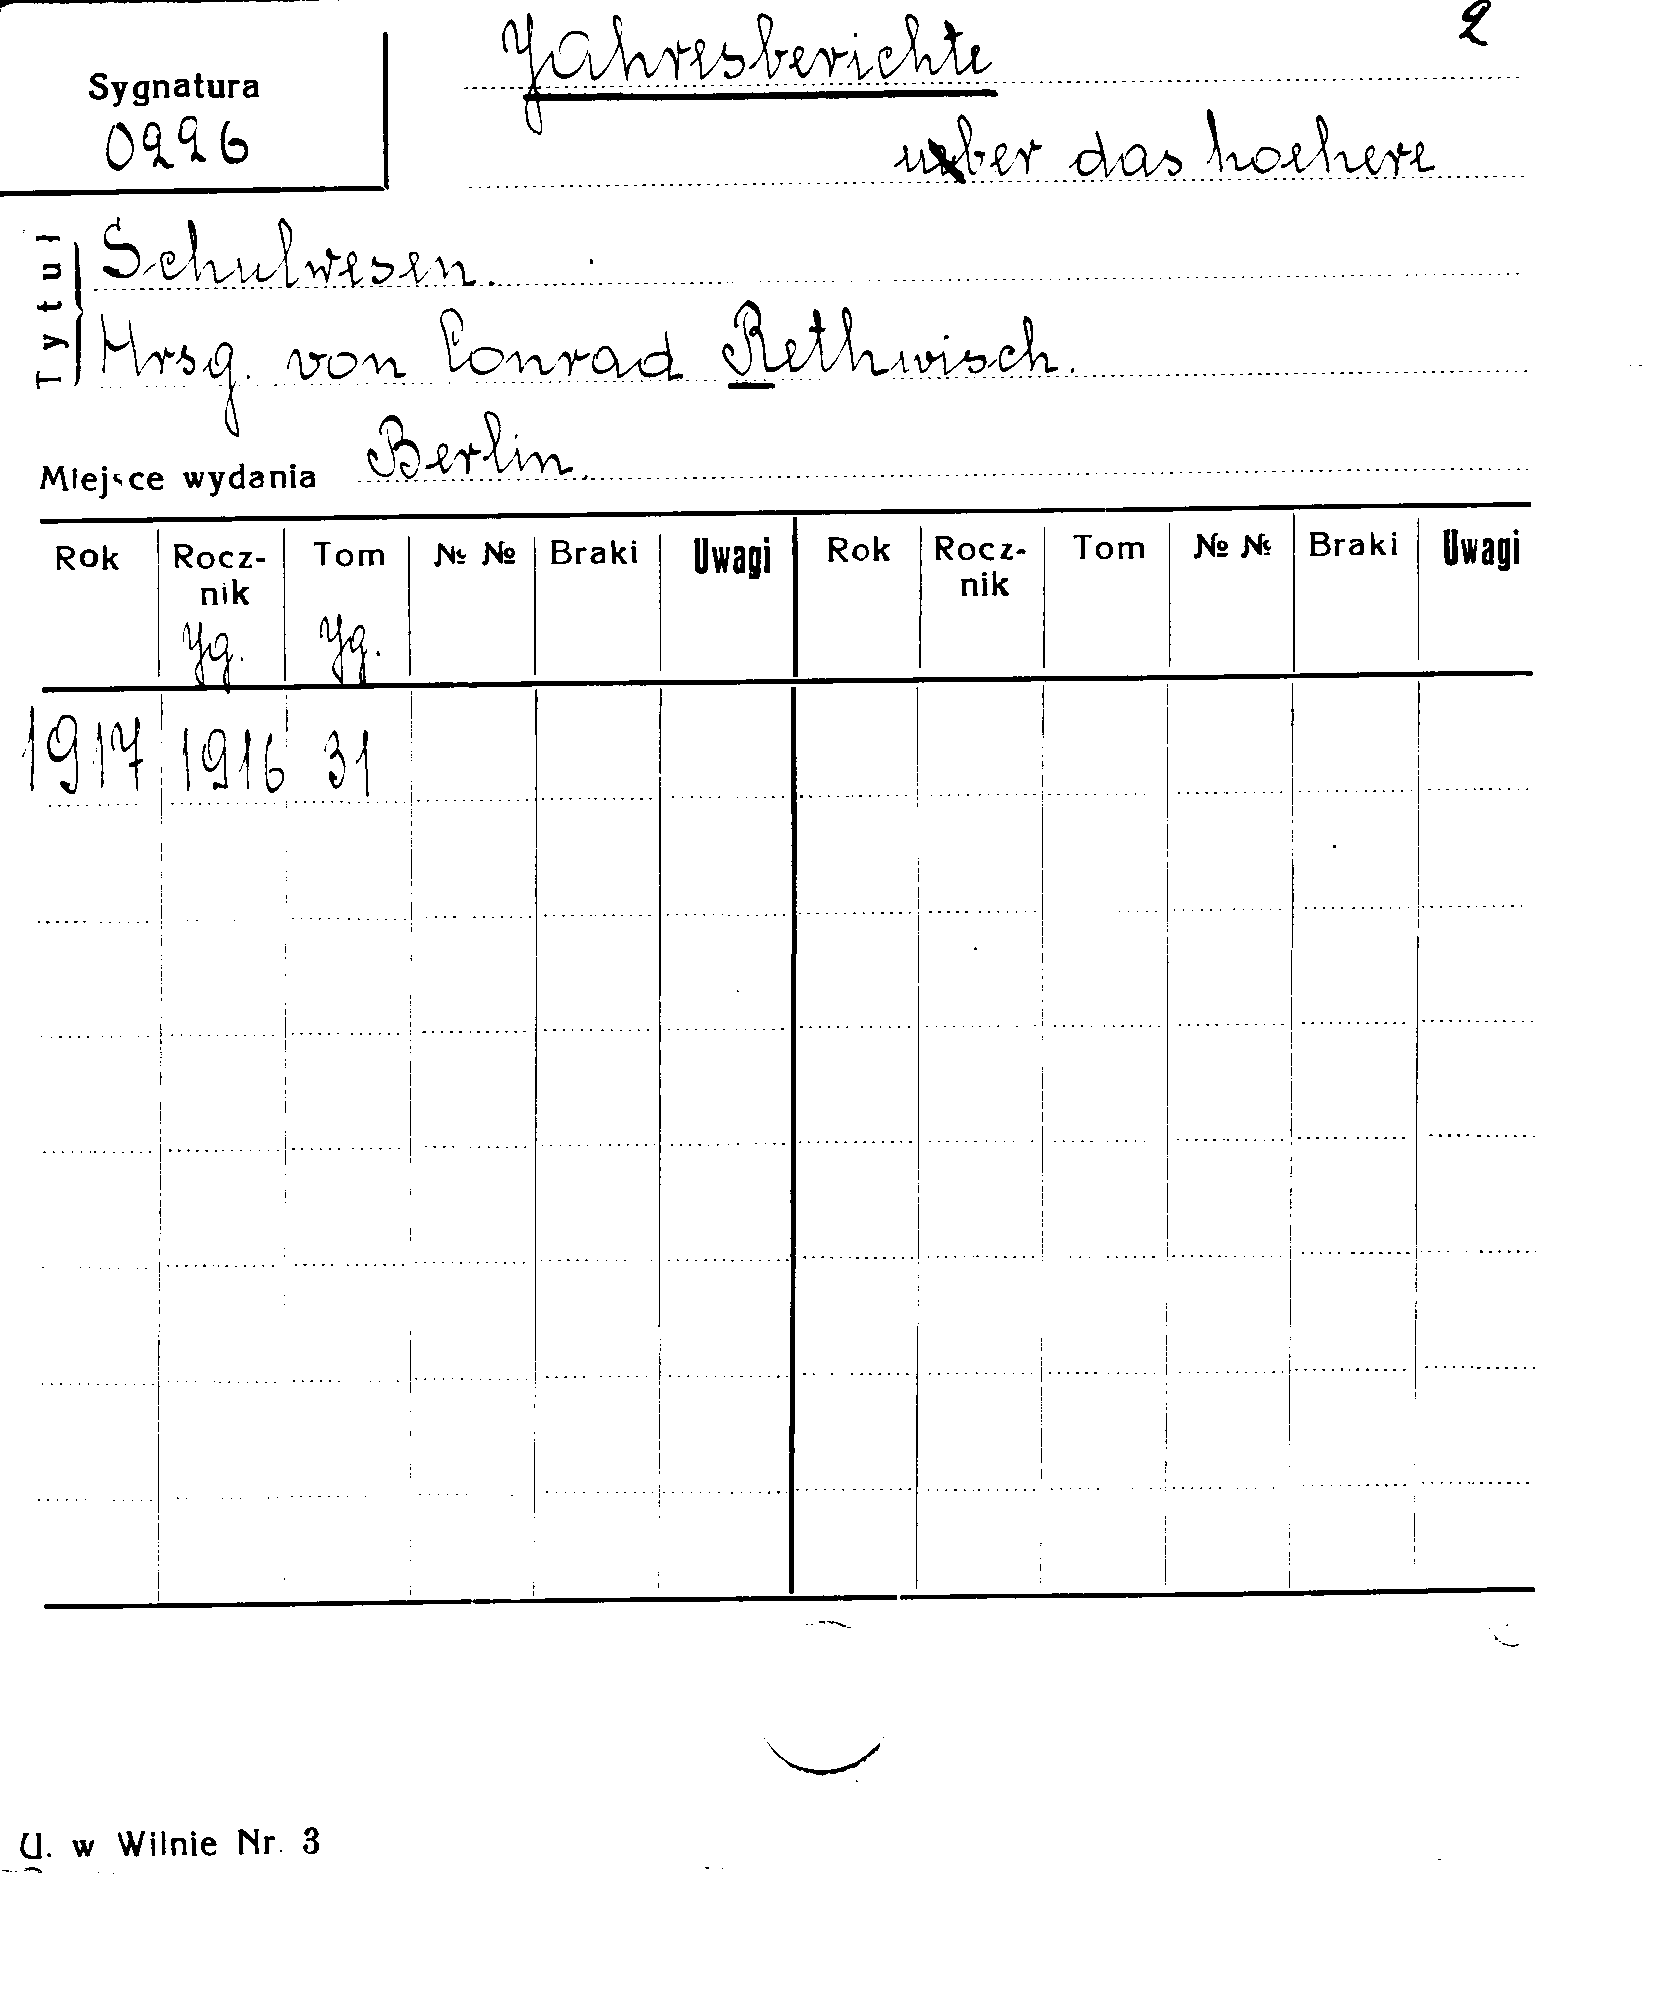 2
Jahresberichte
Sygnatura
0226
ueber das hoehere
Tytuł
Schulwesen.
Hrsg. von Conrad Rethwisch.
Miejsce wydania Berlin.
Rok Rocz-nik Tom № № Braki Uwagi Rok Rocz-nik Tom № № Braki Uwagi
Jg. Jg.
1917 1916 31
U. w Wilnie Nr. 3